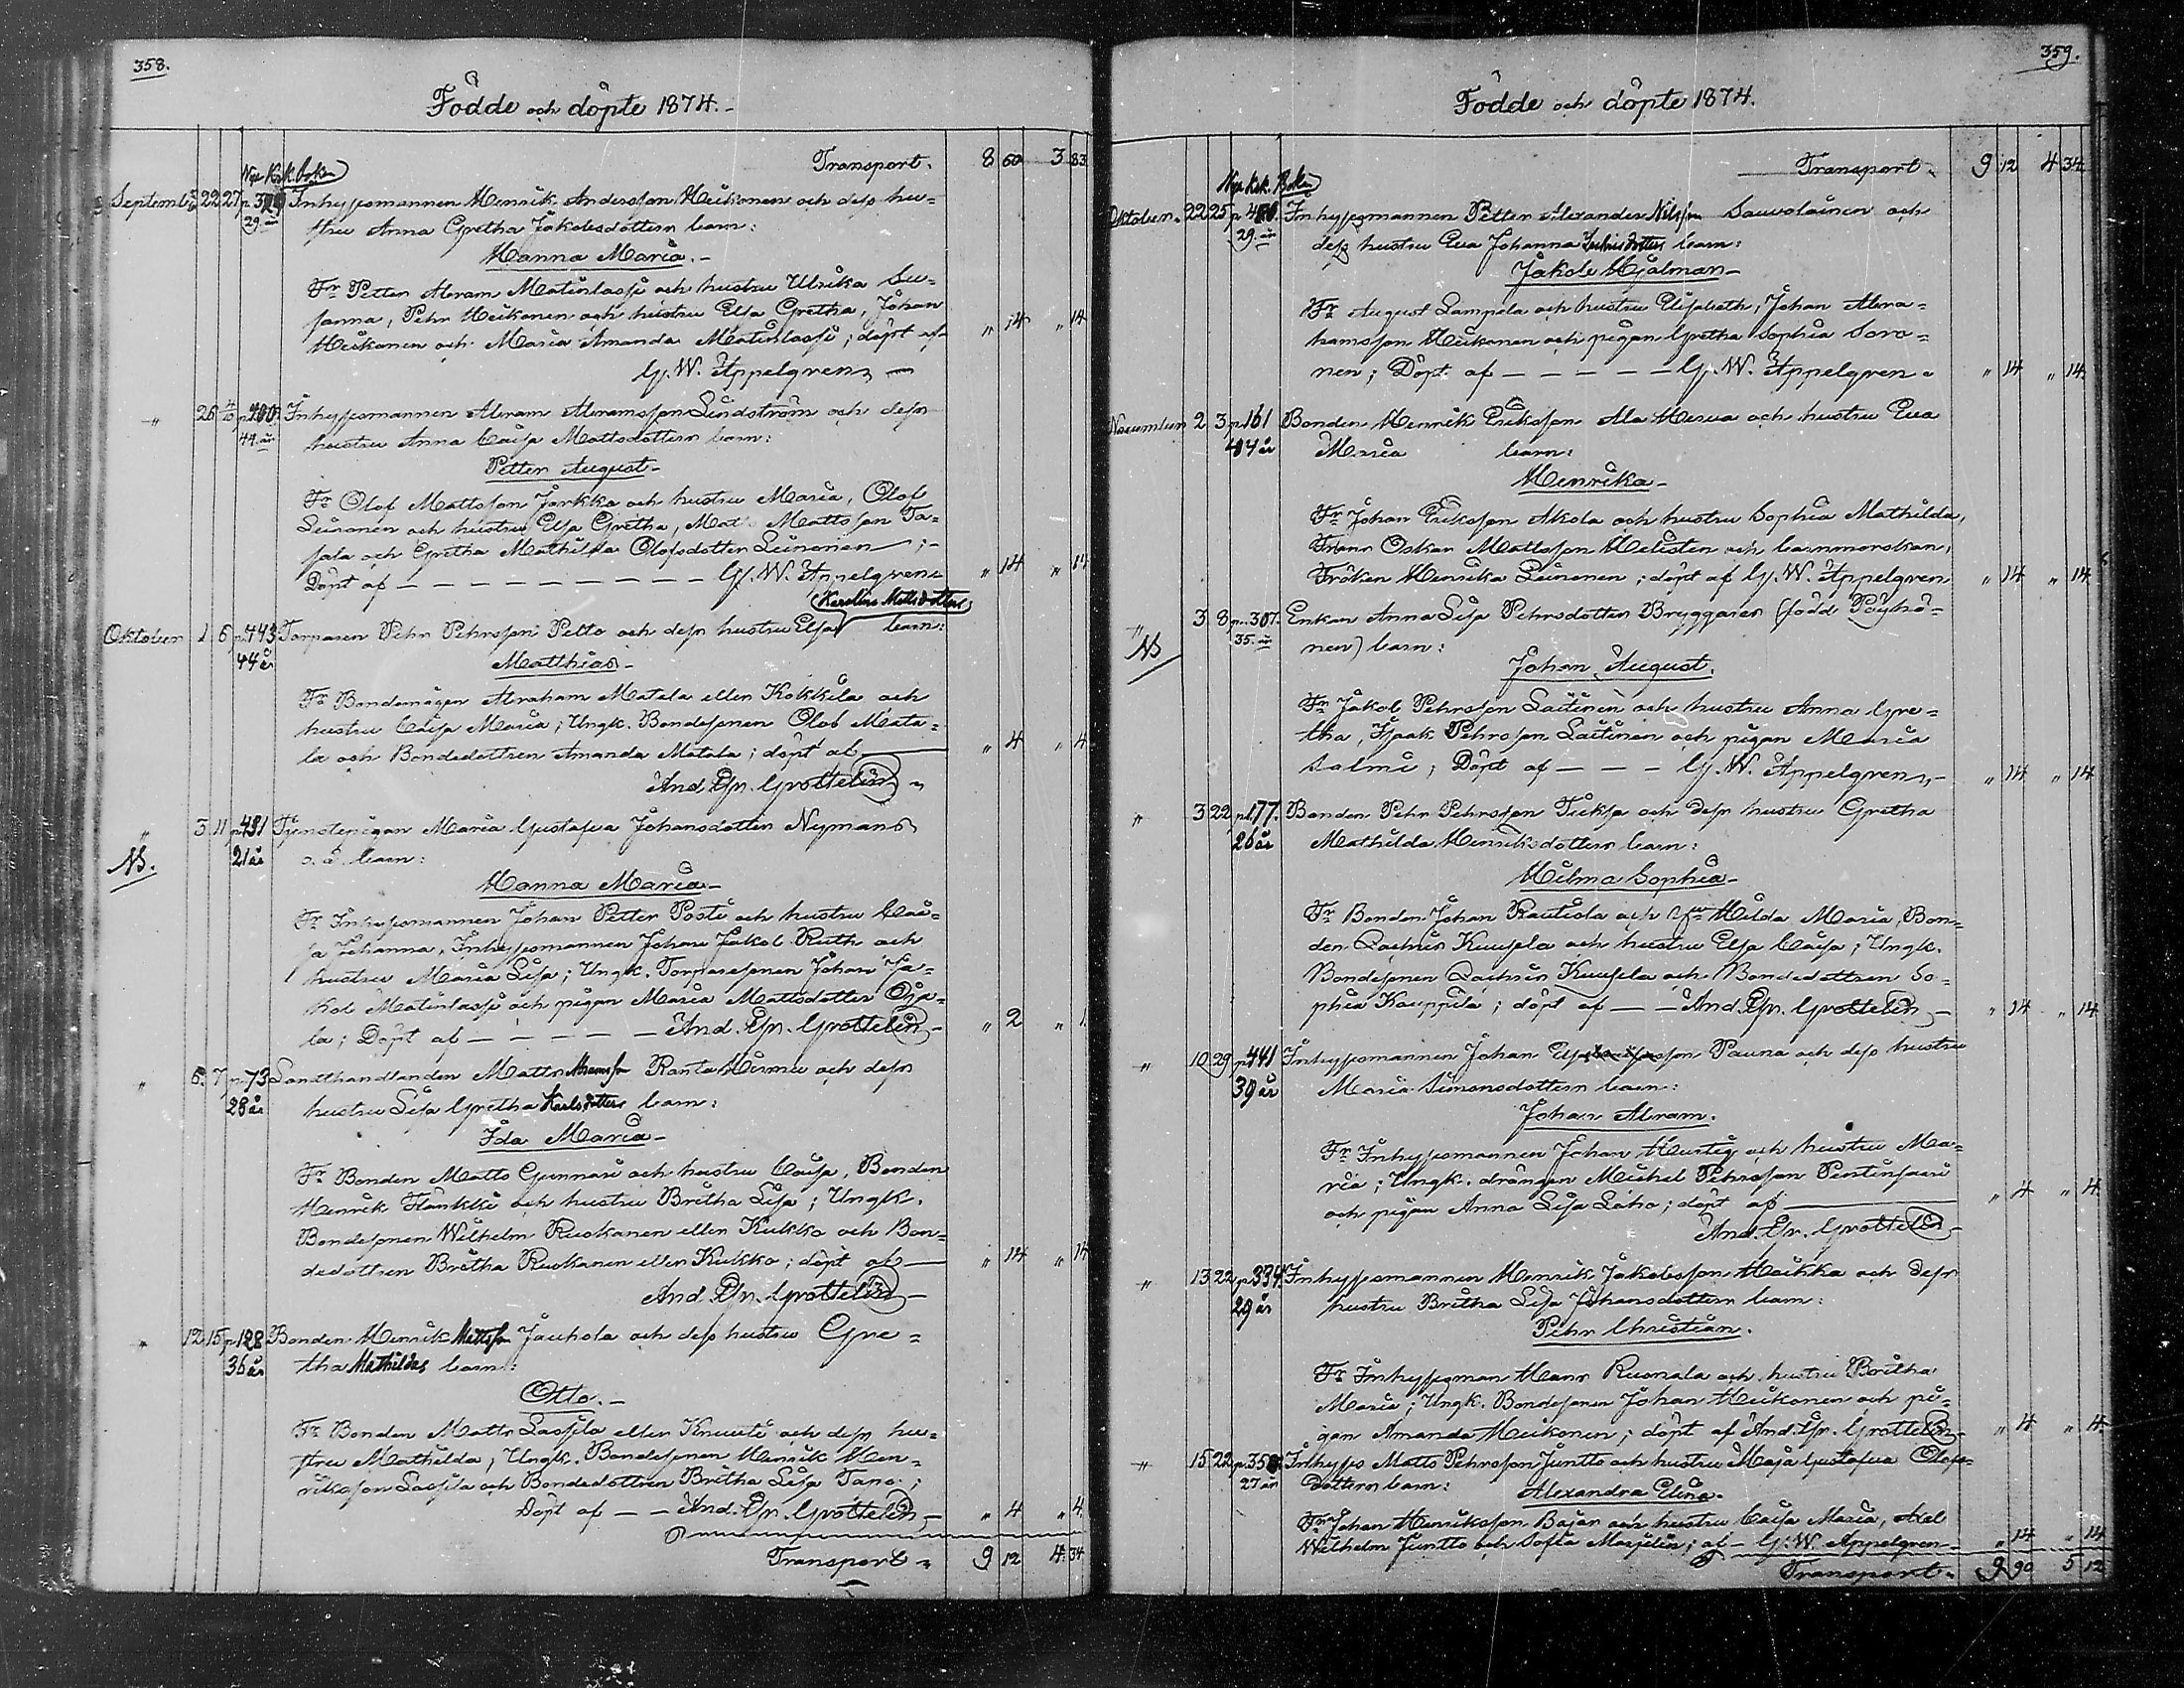 358.
Födde och döpte 1874.-
Nya Krk. boken
Transport. 8 60 3 83
September 22 27 p. Inhysesmannen Henrik Andersson Heikonen och dess hu-
29 år stru Anna Gretha Jakobsdotters barn:
Hanna Maria.-
Fr Petter Abram Matinlassi och hustru Ulrika Su-
sanna, Pehr Heikonen och hustru Elsa Gretha, Johan
Heikonen och Maria Amanda Matinlassi; döpt af " 14 " 14
Gs. W. Appelgren
" 26 4/10 p. 400 Inhysesmannen Abram Abramsson Lindström och dess
44 år hustru Anna Caisa Mattsdotters barn:
Petter August-
Fr Olof Mattsson Jarkka och hustru Maria, Olof
Leinonen och hustru Elsa Gretha, Matts Mattsson Ta-
pala och Gretha Mathilda Olofsdotter Leinonen;-
Döpt af - - - - - - - - - Gs. W. Appelgren " 14 " 14
(Karolina Mattsdotter)
Oktober 1 6 p. 443 Torparen Pehr Pehrsson Pelto och dess hustru Elsa barn:
44 år Matthias-
Fr Bondemågen Abraham Matala eller Kokkila och
hustru Caisa Maria; Ungk. Bondesonen Olof Mata-
la och Bondedottren Amanda Matala; döpt af " 4 " 4
And. Gr. Grottelin
" 3 11 p. 431 Tjenstepigan Maria Gustafva Johansdotter Nymans
NB. 21 år o. ä. barn:
Hanna Maria-
Fr Inhysesmannen Johan Petter Posti och hustru Cai-
sa Johanna, Inhysesmannen Johan Jakob Ruth och
hustru Maria Lisa; Ungk. Torparesonen Johan Ja-
kob Matinlassi och pigan Maria Mattsdotter Oja-
la; Döpt af - - - - - And. Gr. Grottelin- " 2 " 1
" 5 7 p. 73 Landthandlanden Matts Abramsson Ranta Hirmu och dess
28 år hustru Lisa Gretha Karlsdotters barn:
Ida Maria-
Fr Bonden Matts Gunnari och hustru Caisa, Bonden
Henrik Flankki och hustru Britha Lisa; Ungk.
Bondesonen Wilhelm Ruokanen eller Kukko och Bon-
dedottren Britha Ruokanen eller Kukko; döpt af " 14 " 14
And. Gr. Grottelin-
" 12 15 p. 128 Bonden Henrik Mattsson Jauhola och dess hustru Gre-
36 år tha Mathildas barn:
Otto.-
Fr Bonden Matts Lassila eller Knuuti och dess hu-
stru Mathilda; Ungk. Bondesonen Henrik Hen-
riksson Lassila och Bondedottren Britha Lisa Tano;
Döpt af - - And. Gr. Grottelin- " 4 " 4.
Transport 9 12 4 34
359.
Födde och döpte 1874.
Nya Krk. Boken
Transport 9 12 4 34
Oktober 22 25 p. Inhysesmannen Petter Alexander Nilsson Sauvolainen och
29 år dess hustru Eva Johanna barn:
Jakob Hjalmar-
Fr August Lampela och hustru Elisabeth, Johan Abra-
hamsson Heikonen och pigan Gretha Sophia Soro-
nen; Döpt af - - - - - Gs. W. Appelgren " 14 " 14
November 2 3 p. 161 Bonden Henrik Eriksson Ala Herva och hustru Eva
44 år Maria barn:
Henrika-
Fr Johan Eriksson Akola och hustru Sophia Mathilda,
Frans Oskar Mattsson Helisten och barnmorskan,
Fröken Henrika Leinonen; döpt af Gs. W. Appelgren " 14 " 14
" 3 8 p. 307. Enkan Anna Lisa Pehrsdotter Bryggares (född Pöyhö-
NB 35 år nen) barn:
Johan August.
Fr Jakob Pehrsson Laitinen och hustru Anna Gre-
tha, Isaak Pehrsson Laitinen och pigan Maria
Salmi; Döpt af - - - Gs. W. Appelgren,- " 14 " 14
" 3 22 p. 177. Bonden Pehr Pehrsson Tiiksa och dess hustru Gretha
26 år Mathilda Henriksdotters barn:
Hilma Sophia-
Fr Bonden Johan Rautiola och hu Hilda Maria, Bon-
den Zachris Kuusela och hustru Elsa Caisa; Ungk.
Bondesonen Zachris Kuusela och Bondedottren So-
phia Kauppila; döpt af - - And. Gr. Grottelin- " 14 " 14
" 10 29 p. 441 Inhysesmannen Johan Pauna och dess hustru
39 år Maria Simonsdotters barn:
Johan Abram.
Fr Inhysesmannen Johan Hurtig och hustru Ma-
ria; Ungk. drängen Michel Pehrsson Pentinsaari
och pigan Anna Lisa Laho; döpt af " 4 " 4
And. Gr. Grottelin-
" 13 22 p. 334 Inhysesmannen Henrik Jakobsson Haikka och dess
29 år hustru Britha Lisa Johansdotters barn:
Pehr Christian.
Fr Inhysesman Hans Ruonala och hustru Britha
Maria; Ungk. Bondesonen Johan Heikonen och pi-
gan Amanda Heikonen; döpt af And. Gr. Grottelin- " 4 " 4
" 15 22 p. Inhyses Matts Pehrsson Juntto och hustru Maja Gustafva Olofs-
27 år dotters barn: Alexandra Elina-
Fr Johan Henriksson Bajar och hustru Caisa Maria, Axel
Wilhelm Juntto och Sofia Marjelin; af - Gs. W. Appelgren- " 14 " 14
Transport 9 90 5 12